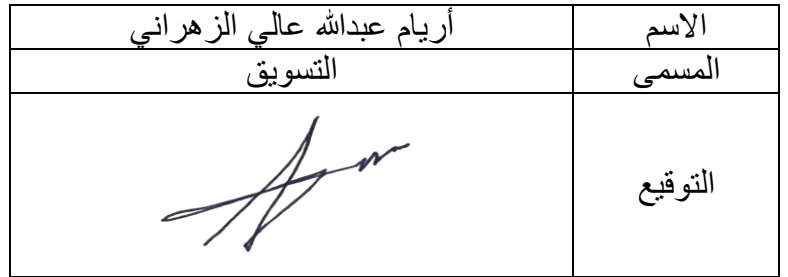 الاسم أريام عبدالله عالي الزهراني
المسمى التسويق
التوقيع